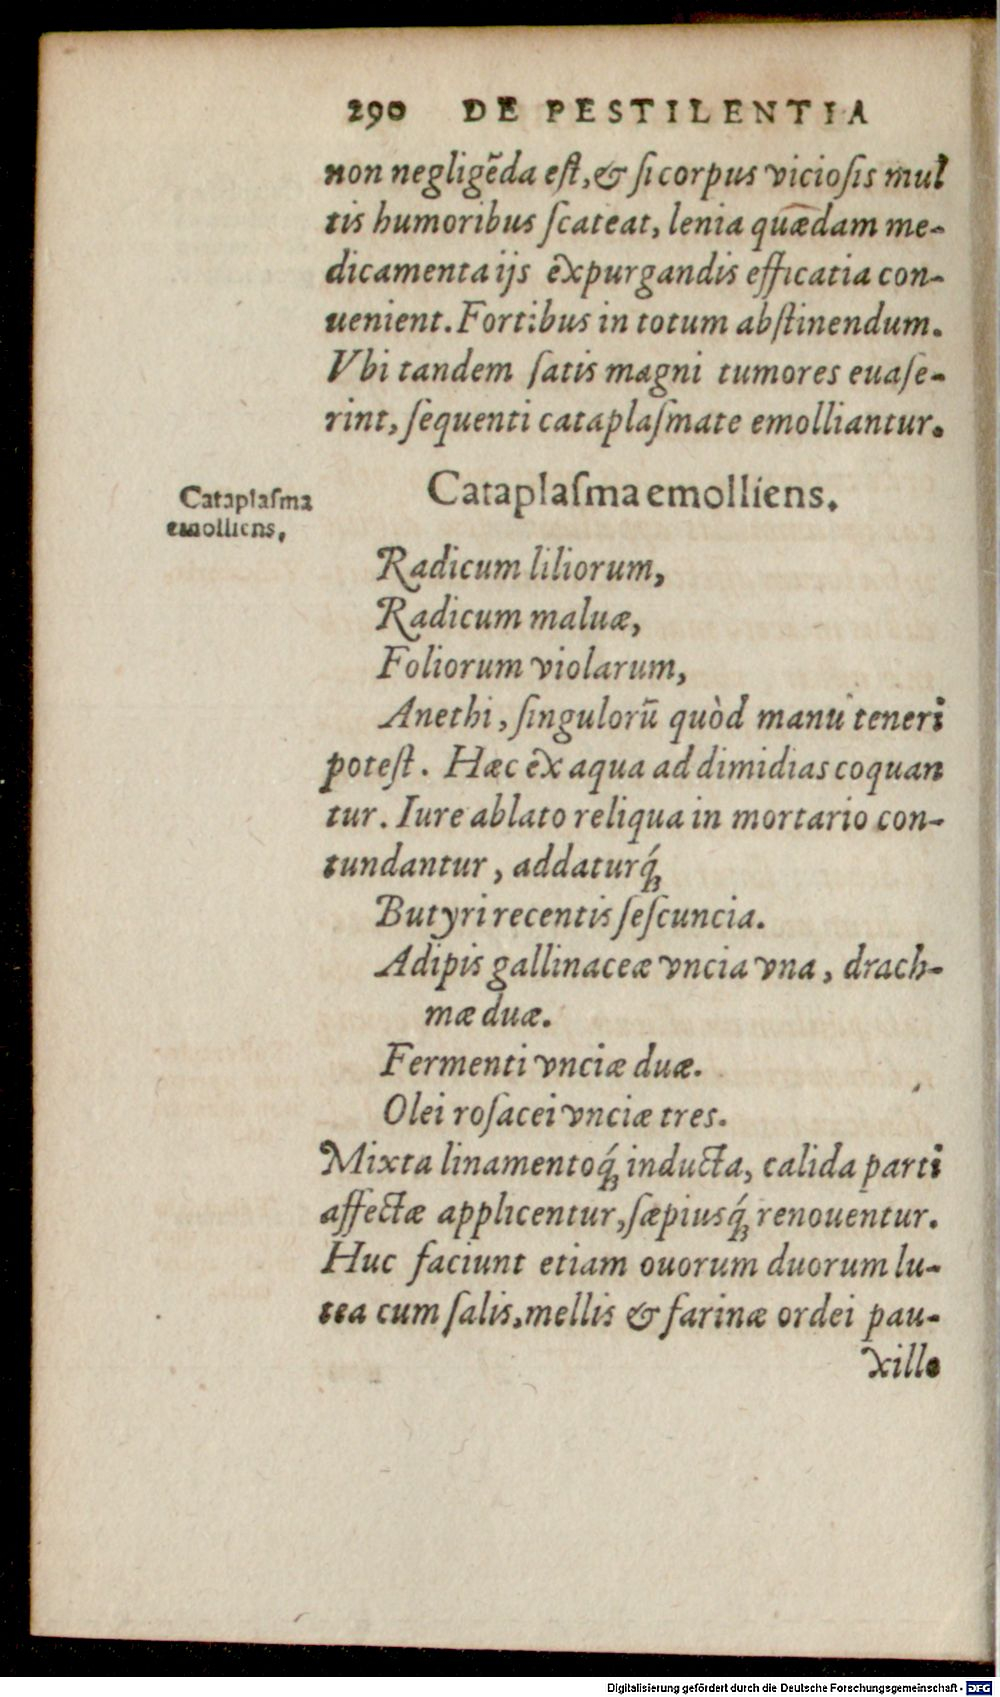 290 DE PESTILENTIA
non negligẽda eſt, & ſi corpus vicioſis mul
tis humoribus ſcateat, lenia quædam me-
dicamenta ijs expurgandis efficatia con-
uenient. Fortibus in totum abſtinendum.
Vbi tandem ſatis magni tumores euaſe-
rint, ſequenti cataplaſmate emolliantur.
Cataplaſma
emolliens.
Cataplaſma emolliens.
Radicum liliorum,
Radicum maluæ,
Foliorum violarum,
Anethi, ſingulorũ quòd manu teneri
poteſt. Hæc ex aqua ad dimidias coquan
tur. Iure ablato reliqua in mortario con-
tundantur, addaturq́;
Butyri recentis ſeſcuncia.
Adipis gallinaceæ vncia vna, drach-
mæ duæ.
Fermenti vnciæ duæ.
Olei roſacei vnciæ tres.
Mixta linamentoq́; inducta, calida parti
affectæ applicentur, ſæpiusq́; renouentur.
Huc faciunt etiam ouorum duorum lu-
tea cum ſalis, mellis & farinæ ordei pau-
xillo
Digitalisierung gefördert durch die Deutsche Forschungsgemeinschaft - DFG